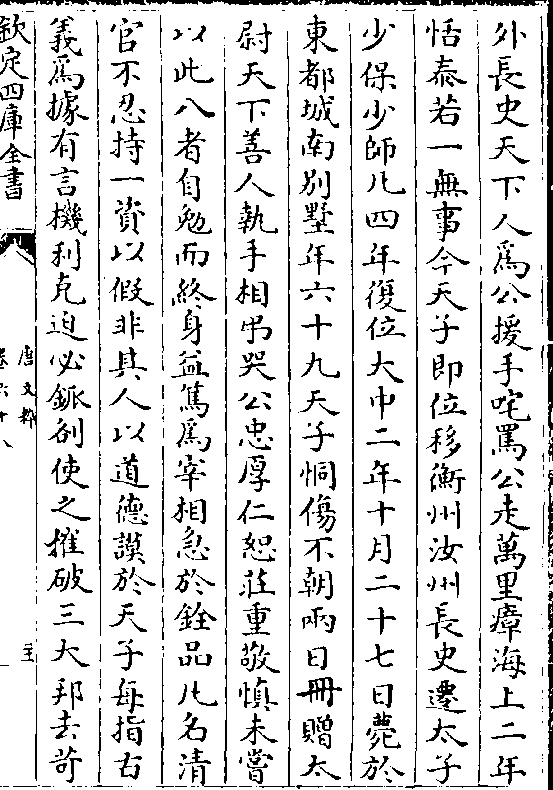 外長史天下人爲公援手咤罵公走萬里瘴海上二年
恬泰若一無事今天子即位移衡州汝州長史遷太子
少保少師凡四年復位大中二年十月二十七日薨於
東都城南别墅年六十九天子恫傷不朝兩日冊贈太
尉天下善人執手相弔哭公忠厚仁恕莊重敬慎未嘗
以此八者自勉而終身益篤爲宰相急於銓品凡名清
官不忍持一資以假非其人以道德謨於天子每指古
義爲據有言機利克迫必鈲刓使之摧破三大邦去苛
欽定四庫全書
唐文粹
卷六十八